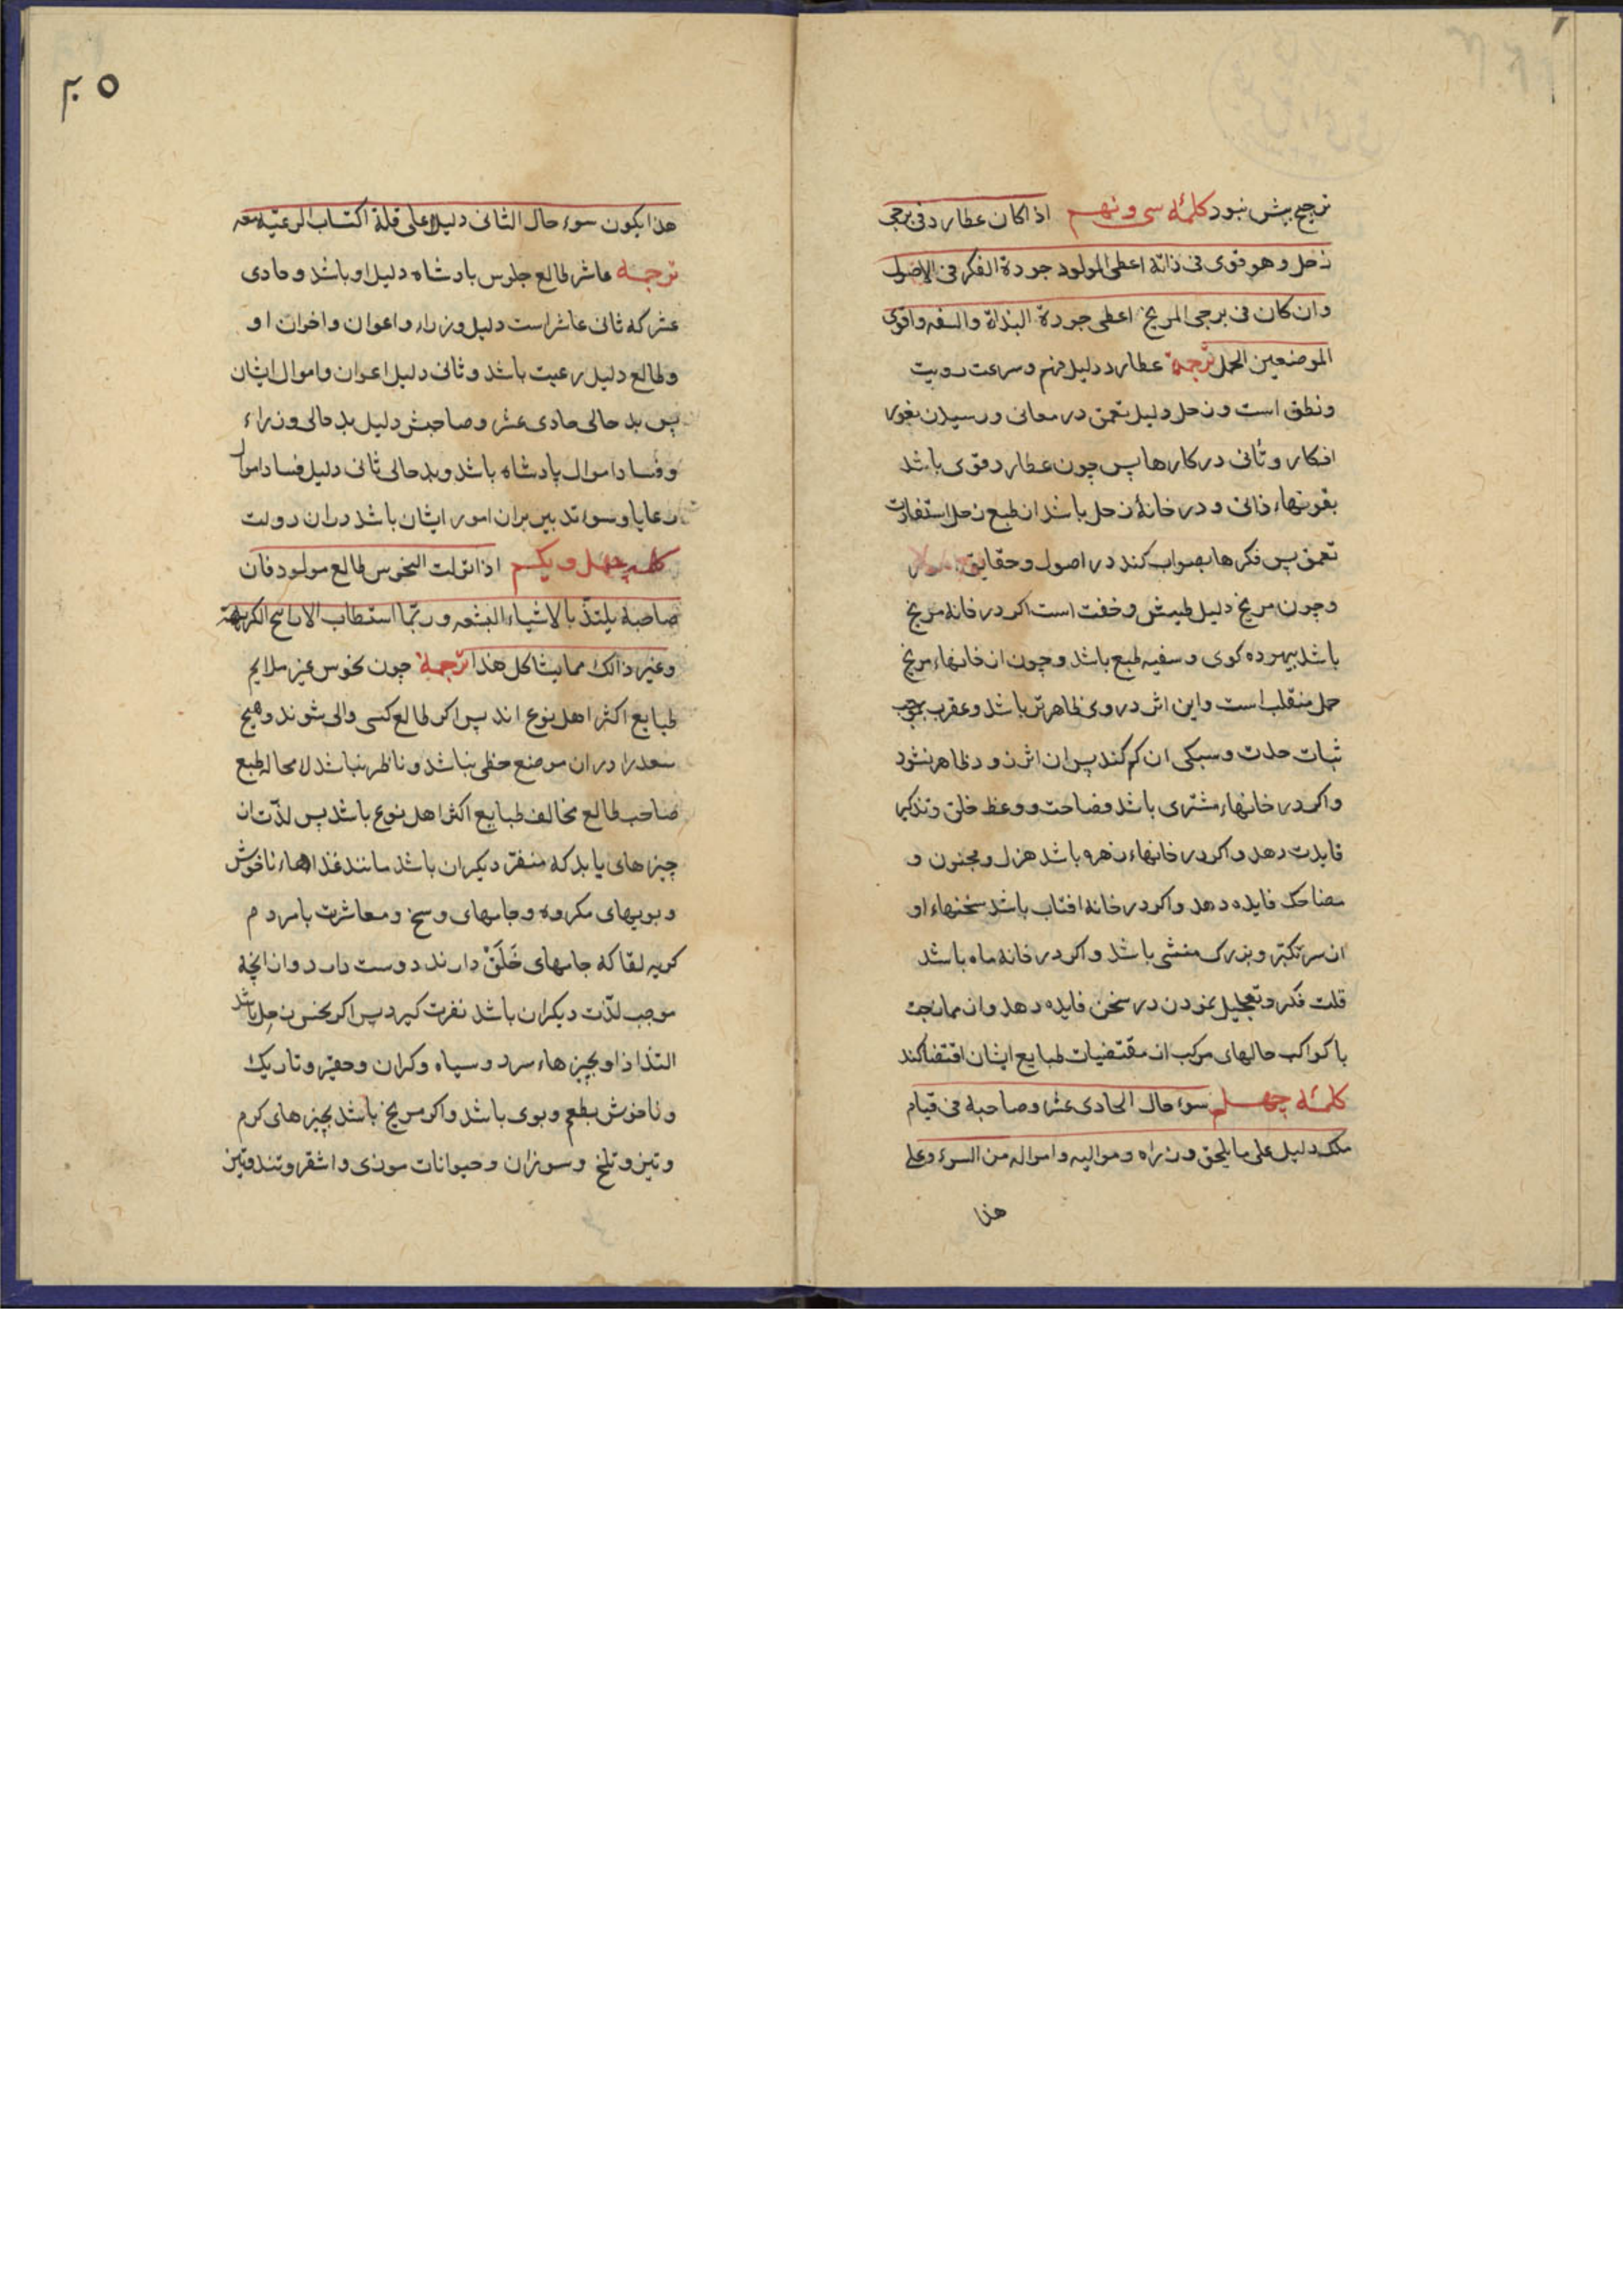 ترجیح بیش نبود کلمهٔ سی و نهم اذا کان عطارد فی برجی
زحل و هو قوی فی ذاته اعطی المولود جودة الفکر فی الاصول
وان کان فی برجی المریخ اعطی جودة البذاة والسفه واقوی
الموضعین الحمل ترجمة عطارد دلیل فهم و سرعت رویت
ونطق است و زحل دلیل تعمق در معانی و رسیدن بغور
افکار و تأنی در کارها پس چون عطارد قوی باشد
بقوتهاء ذاتی و در خانهٔ زحل باشد از طبع زحل استفادت
تعمق پس فکرها بصواب کند در اصول و حقایق
و چون مریخ دلیل طیش و خفت است اکر در خانه مریخ
باشد بیهوده کوی و سفیه طبع باشد و چون از خانهاء مریخ
حمل منقلب است و این اثر در وی ظاهرتر باشد و عقرب بموجب
ثبات حدت و سبکی ان کم کند پس ان اثر زود ظاهر نشود
و اکر در خانهاء مشتری باشد فصاحت و وعظ خلق و تذکیر
فایدت دهد و اکر در خانهاء زهره باشد هزل و مجنون و
مضاحک فایده دهد و اکر در خانه افتاب باشد سخنهاء او
از سر تکبر و بزرک منشی باشد و اکر در خانه ماه باشد
قلت فکر و تعجیل نمودن در سخن فایده دهد و از ممازجت
با کواکب حالهای مرکب از مقتضیات طبایع ایشان اقتضا کند
کلمهٔ چهلم سوء حال الحادی عشر و صاحبه فی قیام
ملک دلیل علی ما یلحق وزراه و موالیه و امواله من السوء وعلی
هذا
۲۰۵
هذا یکون سوء حال الثانی دلیلا علی قلة اکتساب الرعیة معه
ترجمه عاشر طالع جلوس بادشاه دلیل او باشد و حادی
عشر که ثانی عاشر است دلیل وزراء و اعوان و اخوان او
و طالع دلیل رعیت باشد و ثانی دلیل اعوان و اموال ایشان
پس بد حالی حادی عشر و صاحبش دلیل بد حالی وزراء
و فساد اموال پادشاه باشد و بد حالی ثانی دلیل فساد اموال
رعایا و سوء تدبیر بران امور ایشان باشد دران دولت
کلمه چهل و یکم اذا تولت النحوس طالع مولود فان
صاحبه یلتذ بالاشیاء البشعه و ربما استطاب الارایح الکریهة
وغیر ذالک مما یشاکل هذا ترجمة چون نحوس غیر ملایم
طبایع اکثر اهل نوع اند پس اکر طالع کسی والی شوند و هیچ
سعد را دران موضع حظی نباشد و ناظر نباشد لا محاله طبع
صاحب طالع مخالف طبایع اکثر اهل نوع باشد پس لذت از
چیزهای یابد که منفر دیکران باشد مانند غذاهاء ناخوش
و بویهای مکروه و جامهای وسخ و معاشرت بامردم
کریه لقا که جامهای خَلَقْ دارند دوست دارد و از انچه
موجب لذت دیکران باشد نفرت کیرد پس اکر نحس زحل باشد
التذاذ او بچیزهاء سرد و سیاه و کران و حقیر و تاریک
و ناخوش بطعم و بوی باشد و اکر مریخ باشد بچیزهای کرم
و تیز و تلخ و سوزان و حیوانات موذی و اشقر و تند و تیز